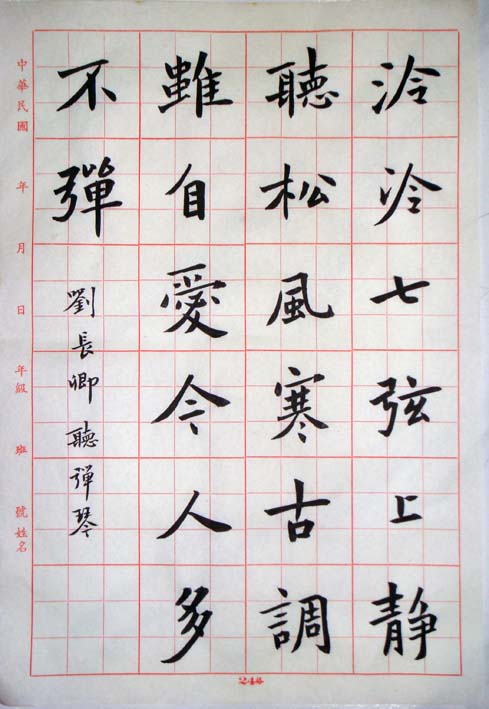 泠泠七弦上靜
聽松風寒古調
雖自愛今人多
不彈
劉長卿聽彈琴
中華民國 年 月 日 年級 班 號姓名
244